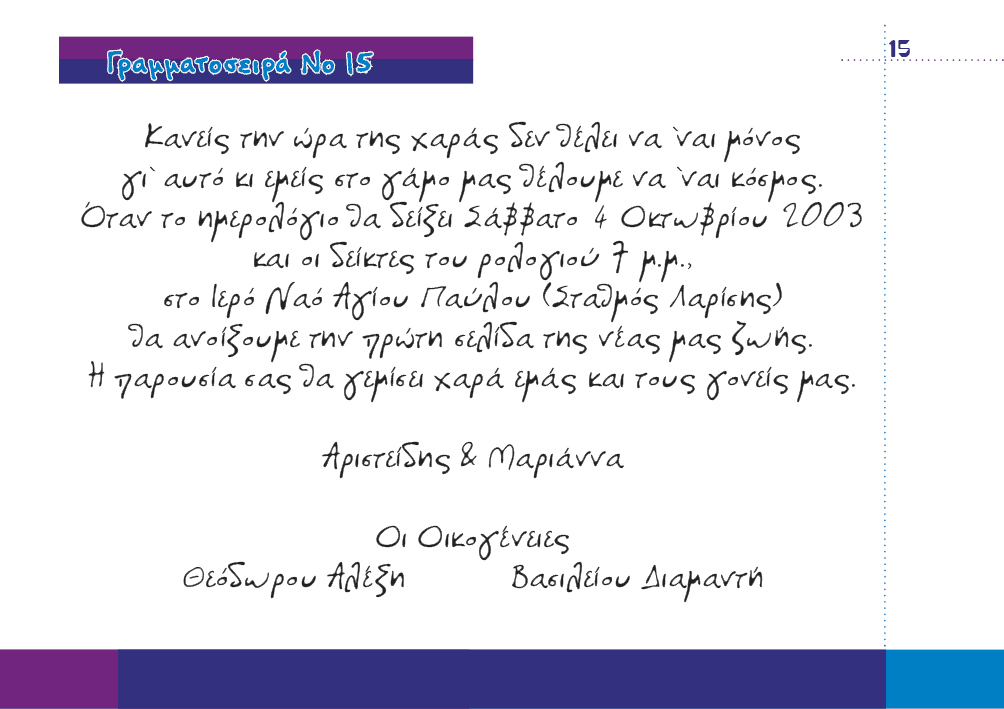 Γραμματοσειρά Νο 15
15
Κανείς την ώρα της χαράς δεν θέλει να `ναι μόνος
γι` αυτό κι εμείς στο γάμο μας θέλουμε να `ναι κόσμος.
Όταν το ημερολόγιο θα δείξει Σάββατο 4 Οκτωβρίου 2003
και οι δείκτες του ρολογιού 7 μ.μ.,
στο Ιερό Ναό Αγίου Παύλου (Σταθμός Λαρίσης)
θα ανοίξουμε την πρώτη σελίδα της νέας μας ζωής.
Η παρουσία σας θα γεμίσει χαρά εμάς και τους γονείς μας.
Αριστείδης & Μαριάννα
Οι Οικογένειες
Θεόδωρου Αλέξη Βασιλείου Διαμαντή